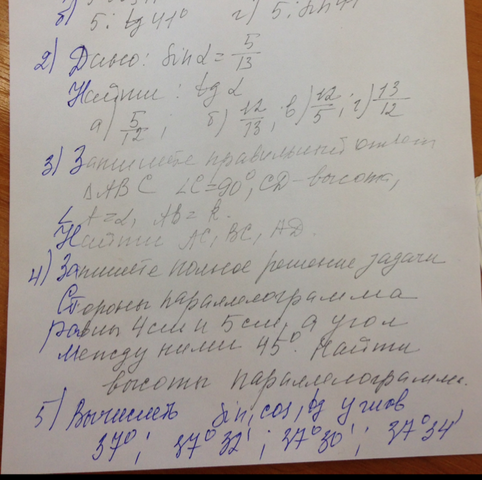 б) 5 · tg 41° г) 5 · sin 41
2) Дано: sin α = 5/13
Найти: tg α
а) 5/12; б) 12/13; в) 12/5; г) 13/12
3) Запишите правильный ответ
△ABC ∠C=90°, CD-высота,
∠A=α, AB=k.
Найти AC, BC, AD.
4) Запишете полное решение задачи
Стороны параллелограмма
равны 4см и 5см, а угол
между ними 45°. Найти
высоты параллелограмма.
5) Вычислить sin, cos, tg углов
37°; 37°32'; 37°30'; 37°34'